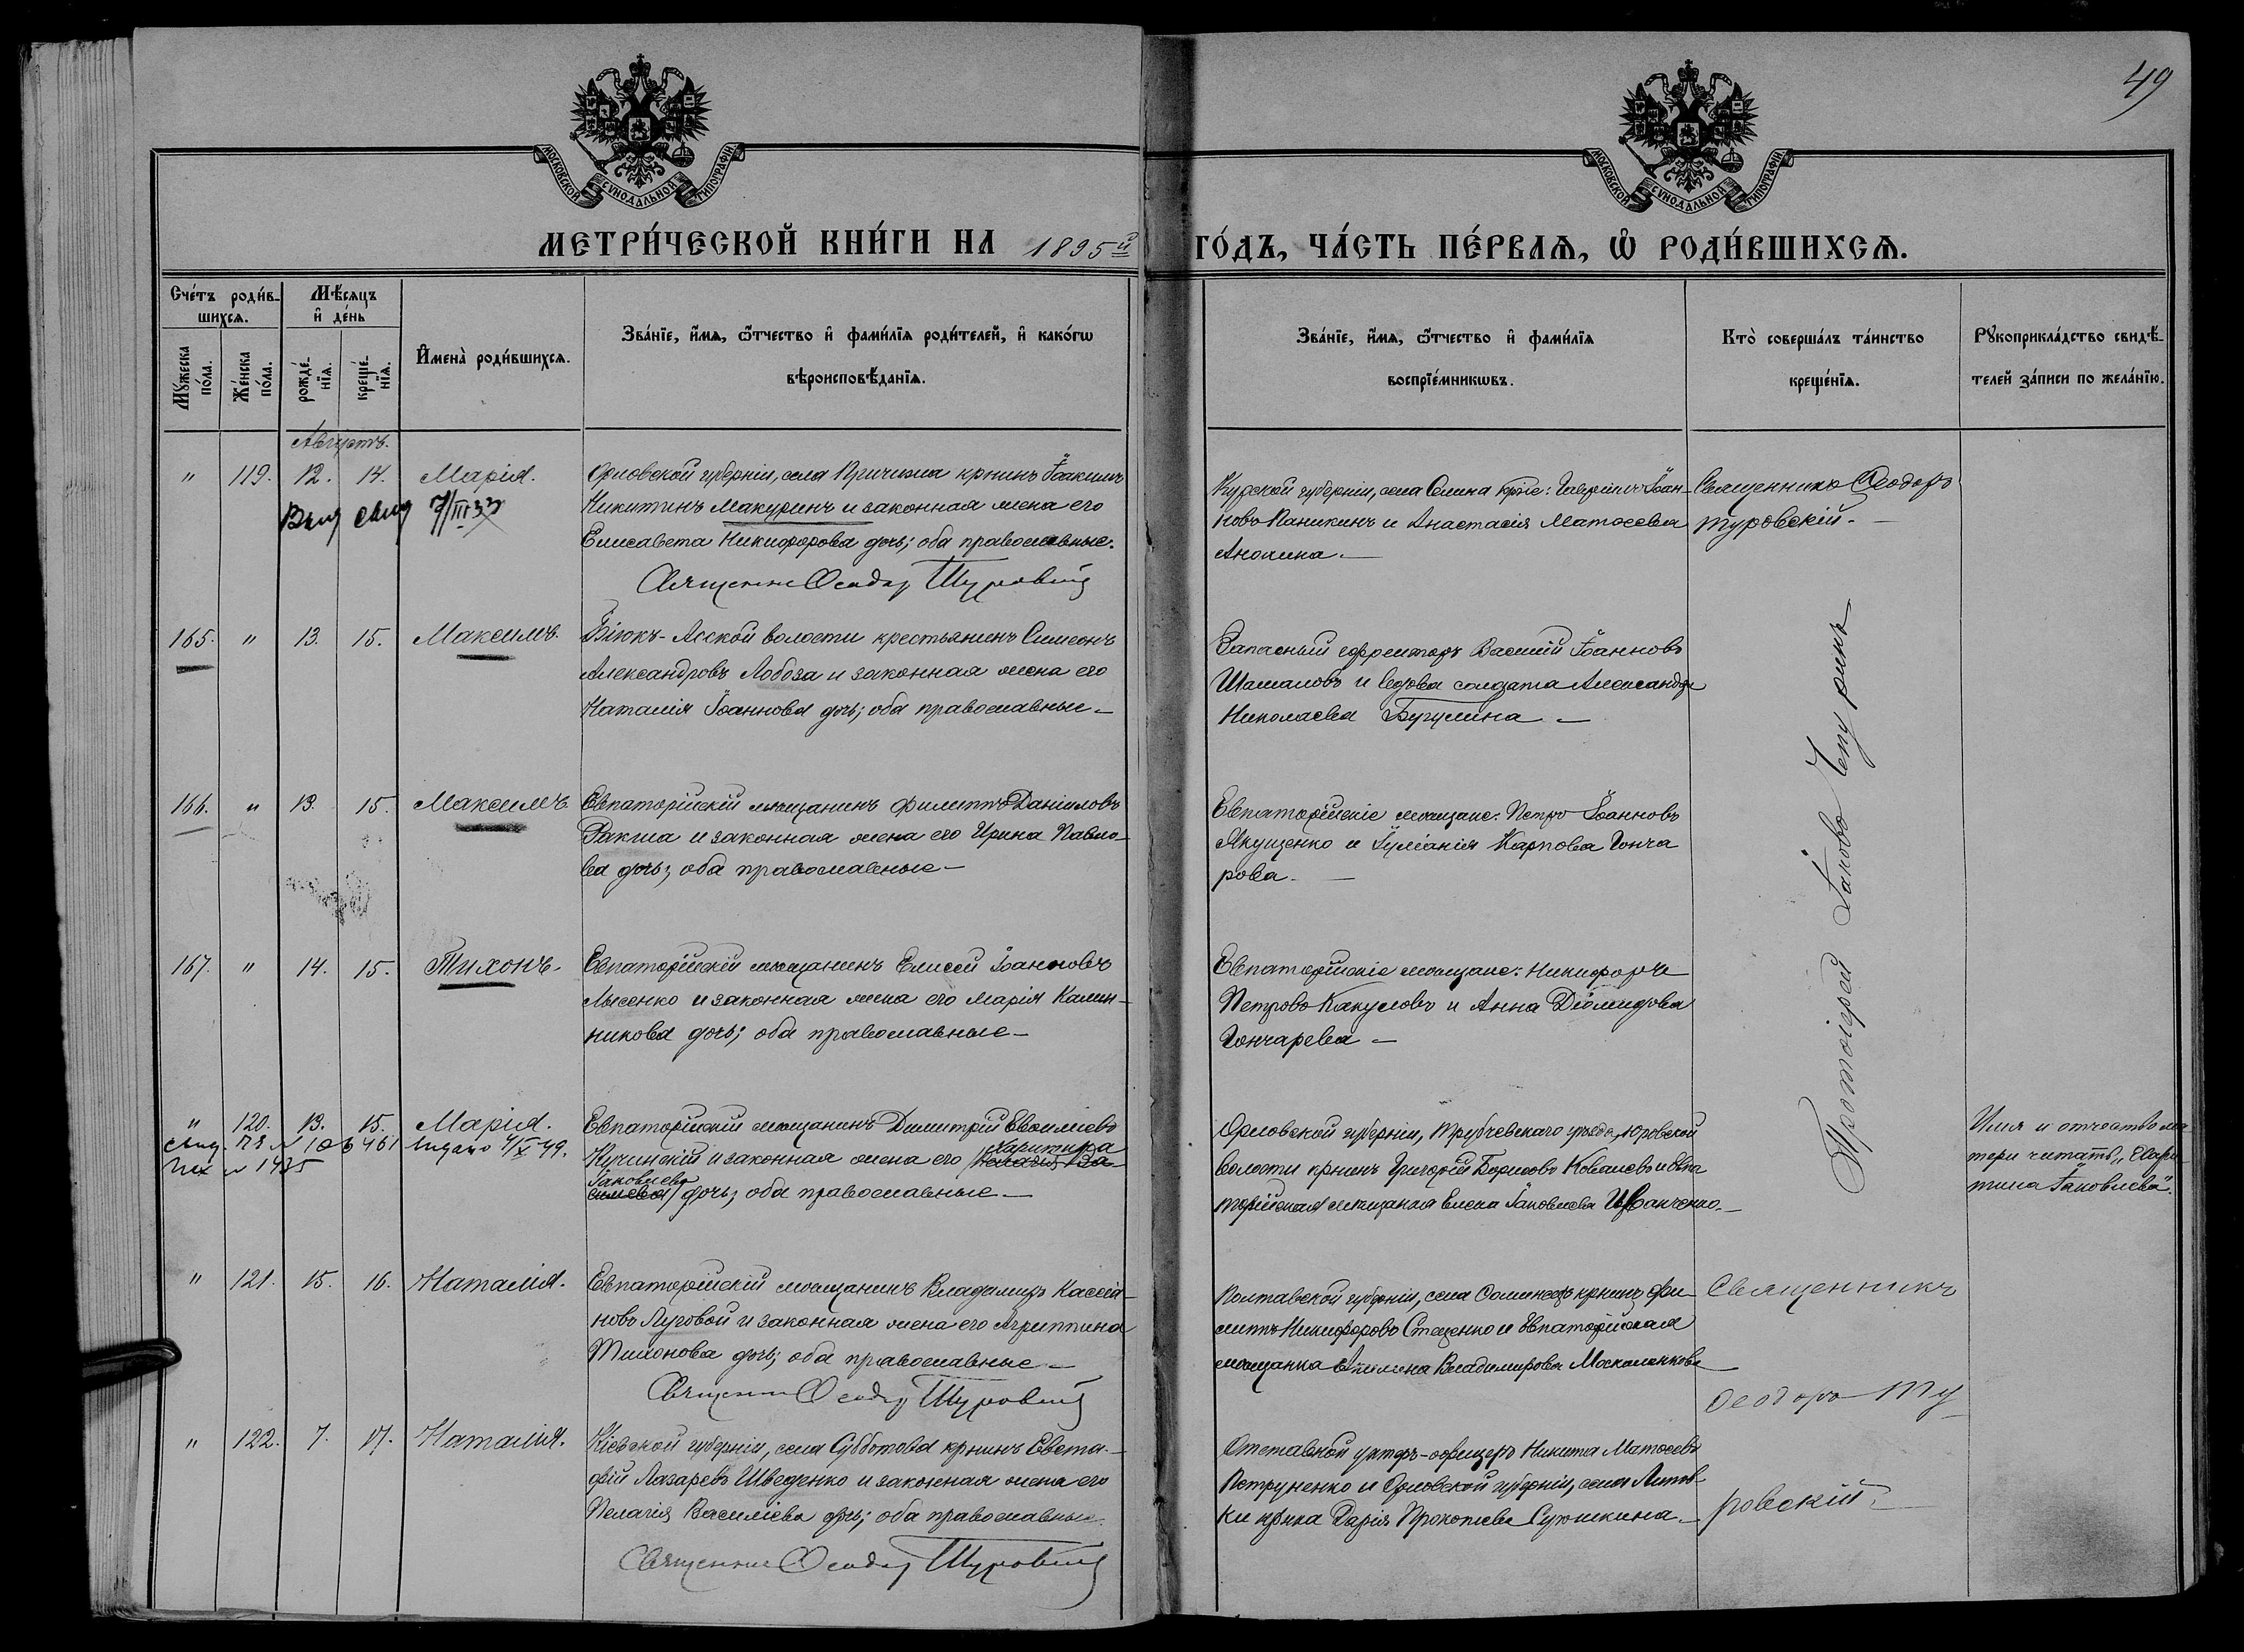 49
МОСКОВСКОЙ СѴНОДАЛЬНОЙ ТИПОГРАФІИ
МОСКОВСКОЙ СѴНОДАЛЬНОЙ ТИПОГРАФІИ
МЕТРИ́ЧЕСКОЙ КНИ́ГИ НА 1895й ГО́ДЪ, ЧА́СТЬ ПЕ́РВАѦ, Ѡ РОДИ́ВШИХСѦ.
Сче́тъ роди́в-
шихсѧ.
Мꙋжеска по́ла.
Же́нска по́ла.
Мѣ́сѧцъ
и де́нь
рожде́-
нїѧ.
креще́-
нїѧ.
Имена̀ роди́вшихсѧ.
Зва́нїе, и́мѧ, ѻ҆́тчество и фами́лїѧ роди́телей, и како́гѡ
вѣроисповѣ́данїѧ.
Зва́нїе, и́мѧ, ѻ҆́тчество и фами́лїѧ
воспрїе́мникѡвъ.
Кто̀ соверша́лъ та́инство
креще́нїѧ.
Рꙋкоприкла́дство свидѣ́-
телей за́писи по жела́нїю.
Августъ.
" 119. 12. 14. Марія.
Орловской губерніи, села Кричина крнинъ Іоакимъ
Никитинъ Макуринъ и законная жена его
Елисавета Никифорова дочь; оба православные.
Священник Ѳеодор Туровский
Выд свид 7/III 33
Курской губерніи, села Сенина крне: Гавріилъ Іоан-
новъ Паникинъ и Анастасія Матѳеева
Анохина.
Священникъ Ѳеодоръ
Туровскій.
165. " 13. 15. Максимъ.
Біюкъ-Асской волости крестьянинъ Симеонъ
Александровъ Лобоза и законная жена его
Наталія Іоаннова дочь; оба православные
Запасный ефрейторъ Василій Іоанновъ
Шамаловъ и вдова солдата Александра
Николаева Бугулина
166. " 13. 15. Максимъ
Евпаторійскій мѣщанинъ Филиппъ Даніиловъ
Ракша и законная жена его Ирина Павло-
ва дочь; оба православные
Евпаторійскіе мѣщане: Петръ Іоанновъ
Якущенко и Іуліанія Карпова Гонча
рова.
167. " 14. 15. Тихонъ.
Евпаторійскій мѣщанинъ Елисей Іоанновъ
Лысенко и законная жена его Марія Калин-
никова дочь; оба православные
Евпаторійскіе мѣщане: Никифоръ
Петровъ Какуловъ и Анна Діомидова
Гончарева
Протоіерей Іаковъ Чепуринъ
" 120. 13. 15. Марія.
свид. ПЯ № 106461 выдано 4/X-49.
Исх № 1435
Евпаторійскій мѣщанинъ Димитрій Евѳиміевъ
Кучинскій и законная жена его Харитина
Іаковлева дочь; оба православные
Орловской губерніи, Трубчевскаго уѣзда, Юровской
волости крнинъ Григорій Борисовъ Ковалевъ и Евпа
торійская мѣщанка Елена Іаковлева Иванченко.
Имя и отчество ма
тери читать „Хари
тина Іаковлева".
" 121. 15. 16. Наталія.
Евпаторійскій мѣщанинъ Владимиръ Кассіа-
новъ Луговой и законная жена его Агриппина
Тихонова дочь; оба православные
Священник Ѳеодор Туровский
Полтавской губерніи, села крнинъ Фи-
липпъ Никифоровъ Стаценко и Евпаторійская
мѣщанка Владимирова Москаленкова
Священникъ
Ѳеодоръ Ту
ровскій.
" 122. 7. 17. Наталія.
Кіевской губерніи, села Субботова крнинъ Евста-
фій Лазаревъ Шведенко и законная жена его
Пелагія Василіева дчь; оба православные.
Священник Ѳеодор Туровский
Отставной унтеръ-офицеръ Никита Матѳеевъ
Петруненко и Орловской губерніи, села Литов-
ки крнка Дарія Прокопіева Сутюшкина.